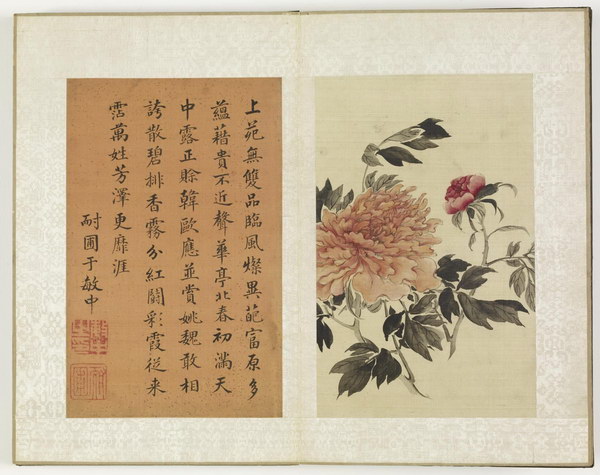 上苑無雙品臨風燦異葩富原多
蘊藉貴不近聲華亭北春初滿天
中露正賒韓歐應並賞姚魏敢相
誇散碧排香霧分紅鬭彩霞從来
霑萬姓芳澤更靡涯
耐圃于敏中